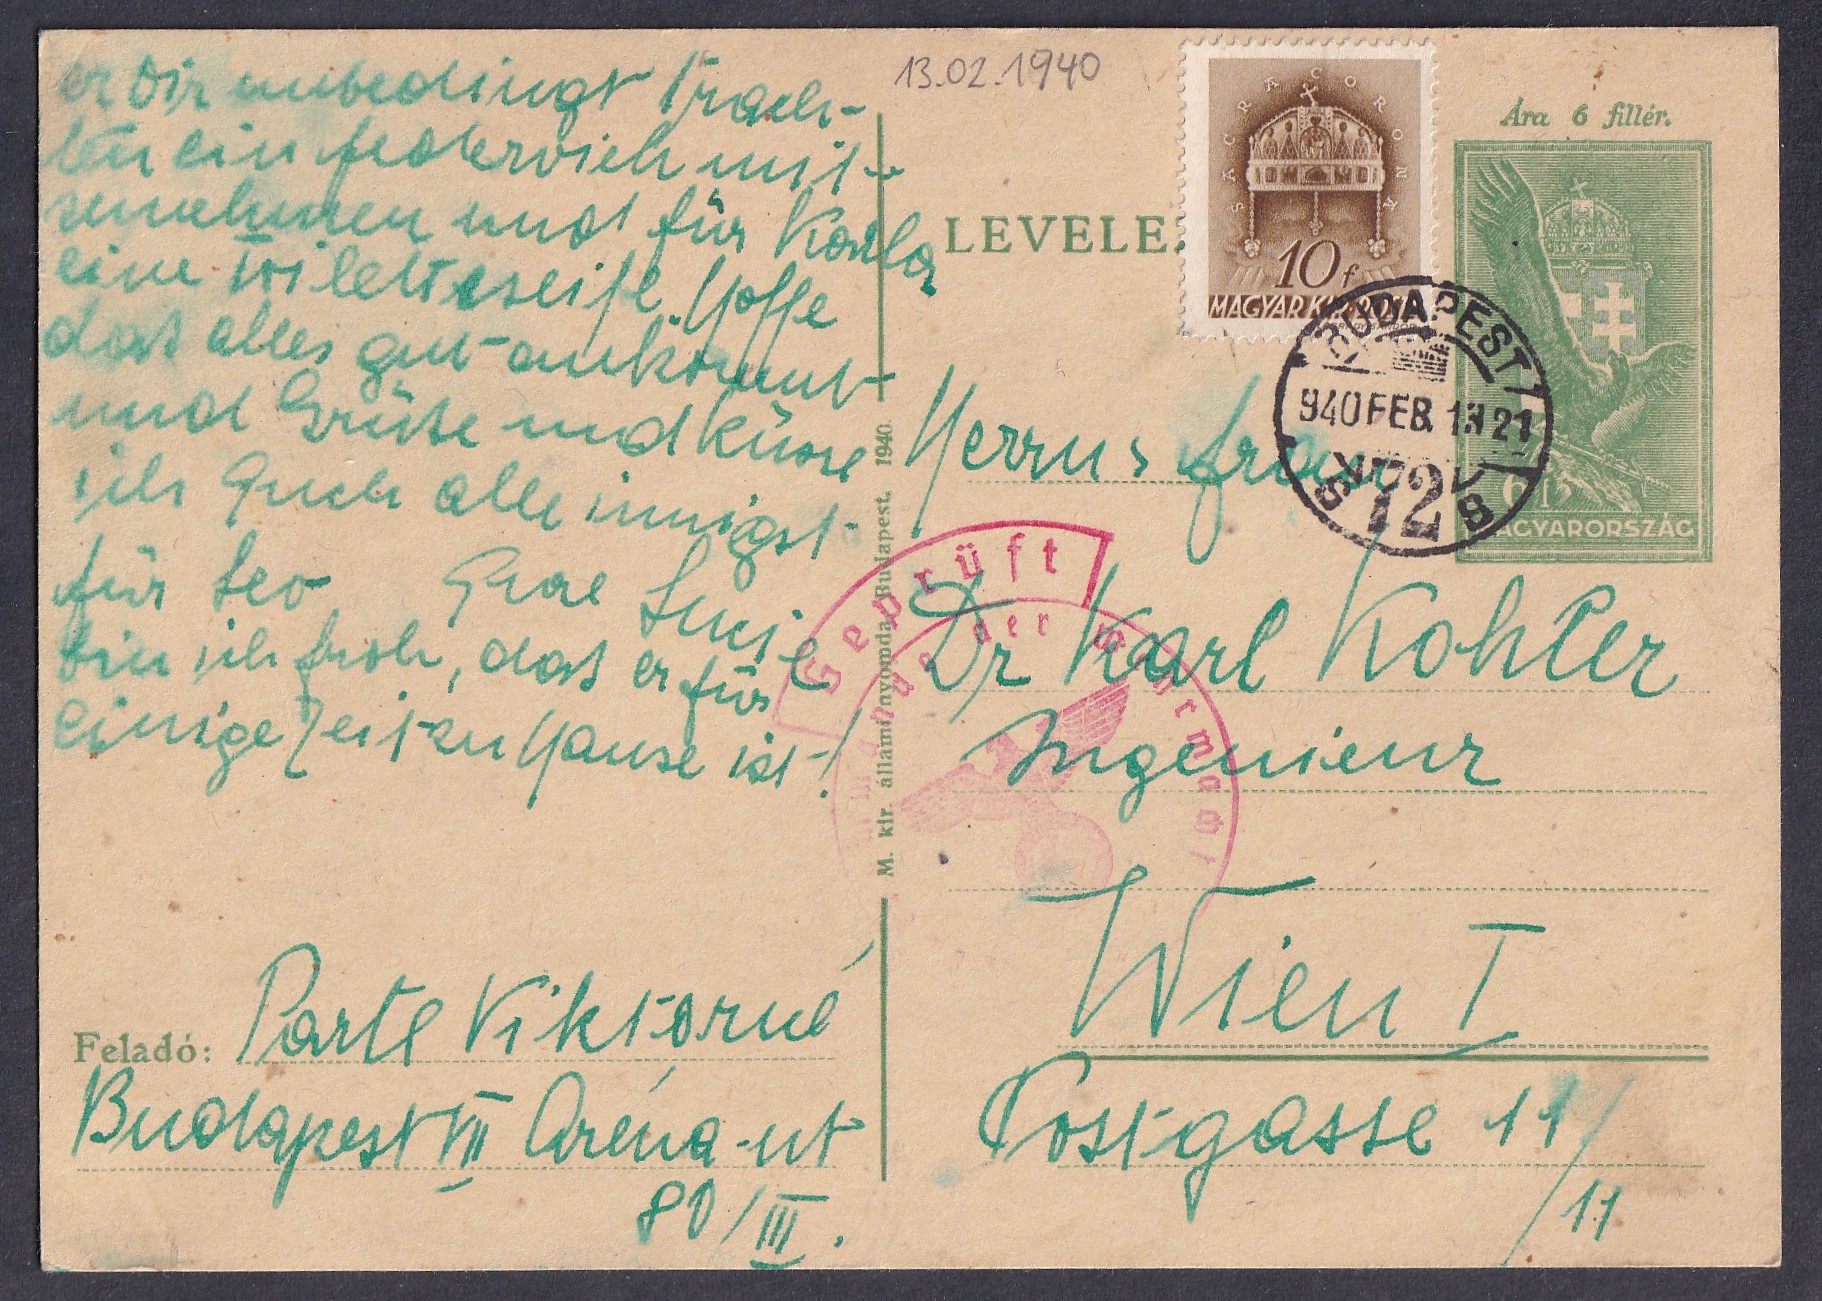 13.02.1940
er Dir unbedingt trach-
ten ein federvieh mit-
zunehmen und für Karla
eine toiletteseife. Hoffe
dass alles gut ankommt
und Grüsse und küsse
ich Euch alle innigst
für Leo. Eure Lucie
bin ich froh, dass er für
einige Zeit zu Hause ist!
Feladó: Parte Viktorné
Budapest VII Aréna-ut
80/III.
M. kir. állami nyomda, Budapest. 1940.
LEVELE
SACRA CORONA
10 f
MAGYAR KIR. POSTA
Ára 6 fillér.
6 f
MAGYARORSZÁG
BUDAPEST
940 FEB. 13 21
72
Geprüft
der Wehrmacht
Herrn u frau
Dr Karl Kohler
Ingenieur
Wien I
Postgasse 11/
/11